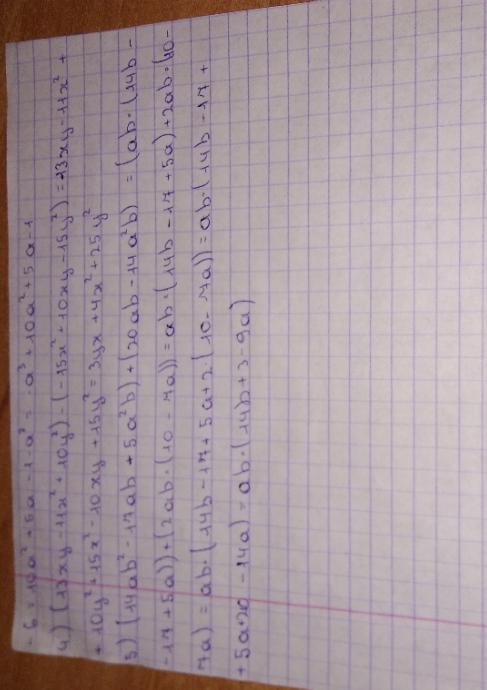 - 6 = 10a² + 5a - 1 - a³ = - a³ + 10a² + 5a - 1
4) (13xy - 11x² + 10y²) - (-15x² + 10xy - 15y²) = 13xy - 11x² +
+ 10y² + 15x² - 10xy + 15y² = 3yx + 4x² + 25y²
5) (14ab² - 17ab + 5a²b) + (20ab - 14a²b) = (ab · (14b -
- 17 + 5a)) + (2ab · (10 - 7a)) = ab · (14b - 17 + 5a) + 2ab · (10 -
7a) = ab · (14b - 17 + 5a + 2 · (10 - 7a)) = ab · (14b - 17 +
+ 5a + 20 - 14a) = ab · (14b + 3 - 9a)